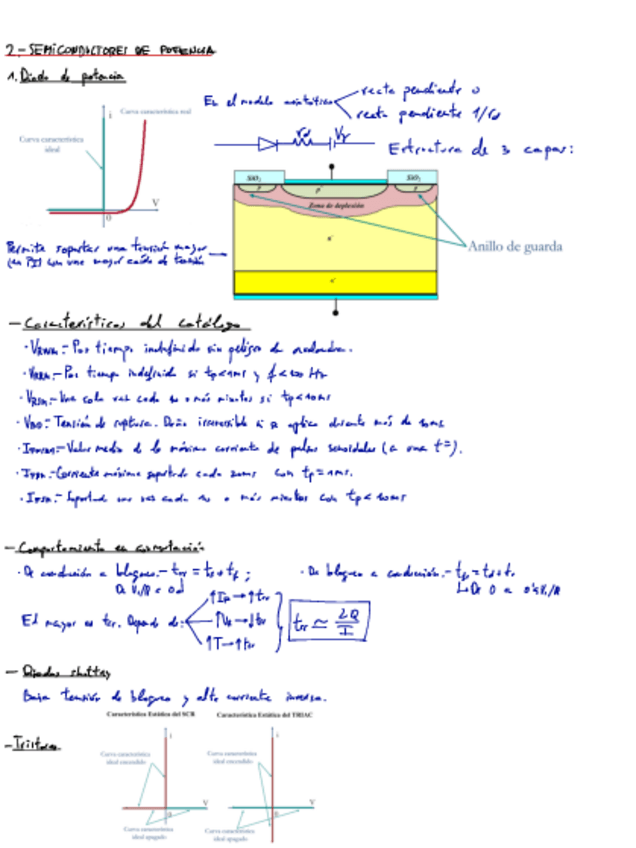 2.- SEMICONDUCTORES DE POTENCIA
1. Diodo de potencia
Curva característica real
Curva característica ideal
i
V
0
En el modelo asintótico
recta pendiente 0
recta pendiente 1/rd
rd Vγ
Estructura de 3 capas:
SiO2
SiO2
P
P+
P
Zona de deplexión
n-
n+
Anillo de guarda
Permite soportar una tensión mayor
(en PI) con una mayor caída de tensión
- Características del catálogo
· VRWM.- Por tiempo indefinido sin peligro de avalancha.
· VRRM.- Por tiempo indefinido si tp<1ms y f<100 Hz
· VRSM.- Una sola vez cada 10 o más minutos si tp<10ms
· VBD.- Tensión de ruptura. Daño irreversible si se aplica durante más de 10ms
· IF(AV).- Valor medio de la máxima corriente de pulsos senoidales (a una tª).
· IFRM.- Corriente máxima soportada cada 20ms con tp=1ms.
· IFSM.- Soportada una vez cada 10 o más minutos con tp<10ms
- Comportamiento en conmutación
· De conducción a bloqueo.- trr = ts+tf ;
De VL/R a 0A
· De bloqueo a conducción.- tfr = td+tr
↳ De 0 a 0'9VL/R
El mayor es trr. Depende de:
↑IF→↑trr
↑VR→↓trr
↑T→↑trr
trr ≃ 2Q/I
- Diodos shottky
Baja tensión de bloqueo y alta corriente inversa.
- Tiristores
Característica Estática del SCR
Característica Estática del TRIAC
Curva característica ideal encendido
Curva característica ideal encendido
i
i
V
V
0
0
Curva característica ideal apagado
Curva característica ideal apagado